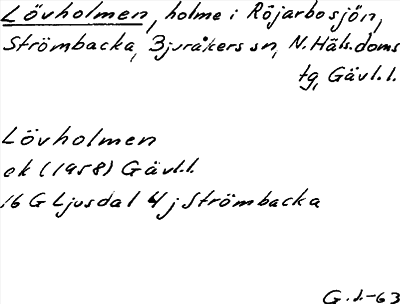 Lövholmen, holme i Röjarbosjön,
Strömbacka, Bjuråkers sn, N. Häls. doms
tg, Gävl. l.
Lövholmen
ek (1958) Gävl. l.
16 G Ljusdal 4 j Strömbacka
G. J.-63